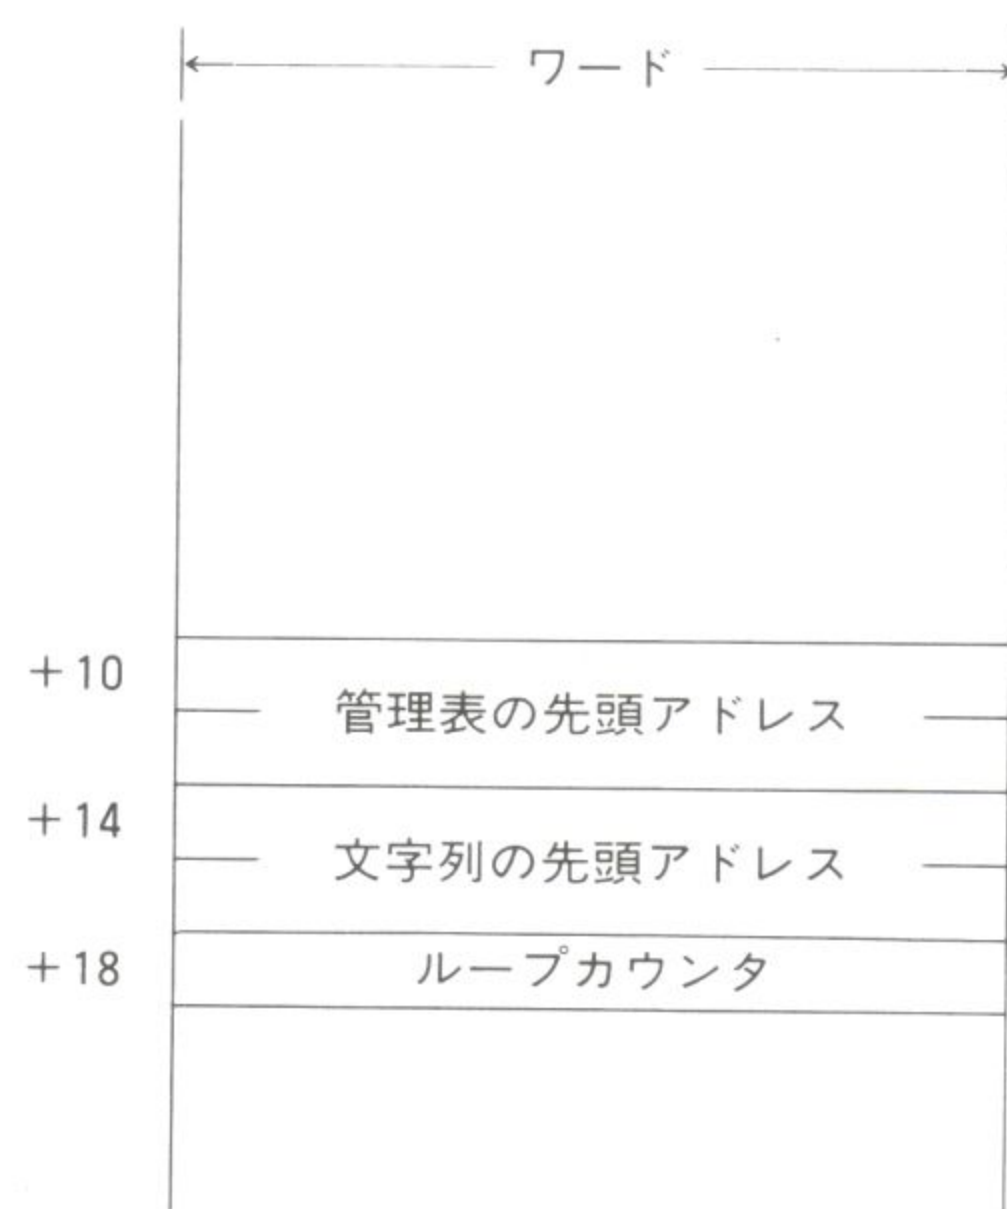 ワード
+10 管理表の先頭アドレス
+14 文字列の先頭アドレス
+18 ループカウンタ